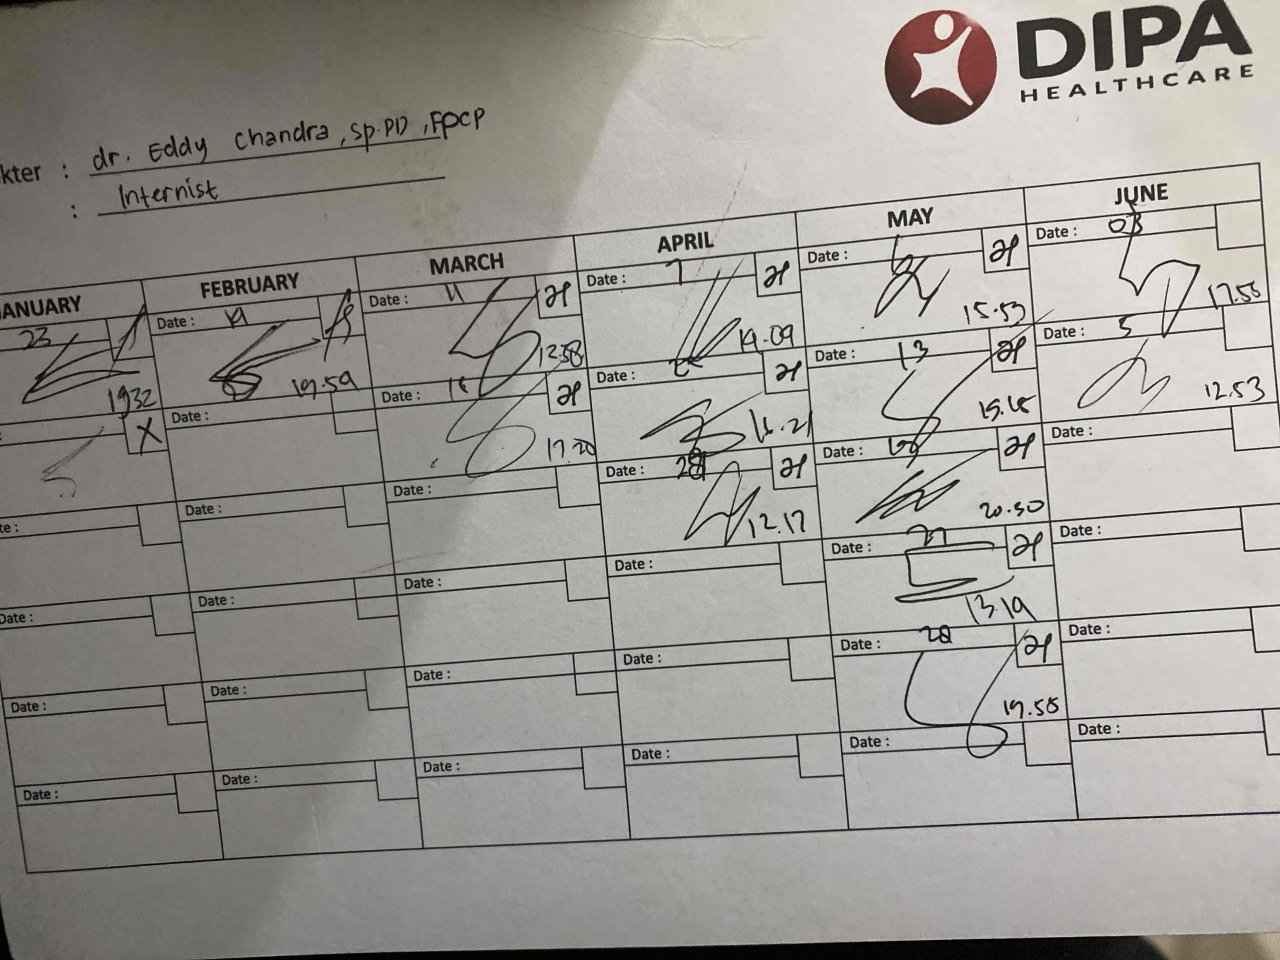 DIPA
HEALTHCARE
kter : dr. Eddy Chandra, Sp.PD, FPCP
: Internist
ANUARY FEBRUARY MARCH APRIL MAY JUNE
23 Date : 19 Date : 11 Date : 7 Date : Date : 03
1932 19.59 12.58 19.09 15.53 17.56
: X Date : Date : 16 Date : Date : 13 Date : 5
17.20 16.21 19.18 12.53
te : Date : Date : Date : 28 Date : Date :
12.17 20.50
Date : Date : Date : Date : Date : 27 Date :
13.19
Date : Date : Date : Date : Date : 28 Date :
19.58
Date : Date : Date : Date : Date : Date :